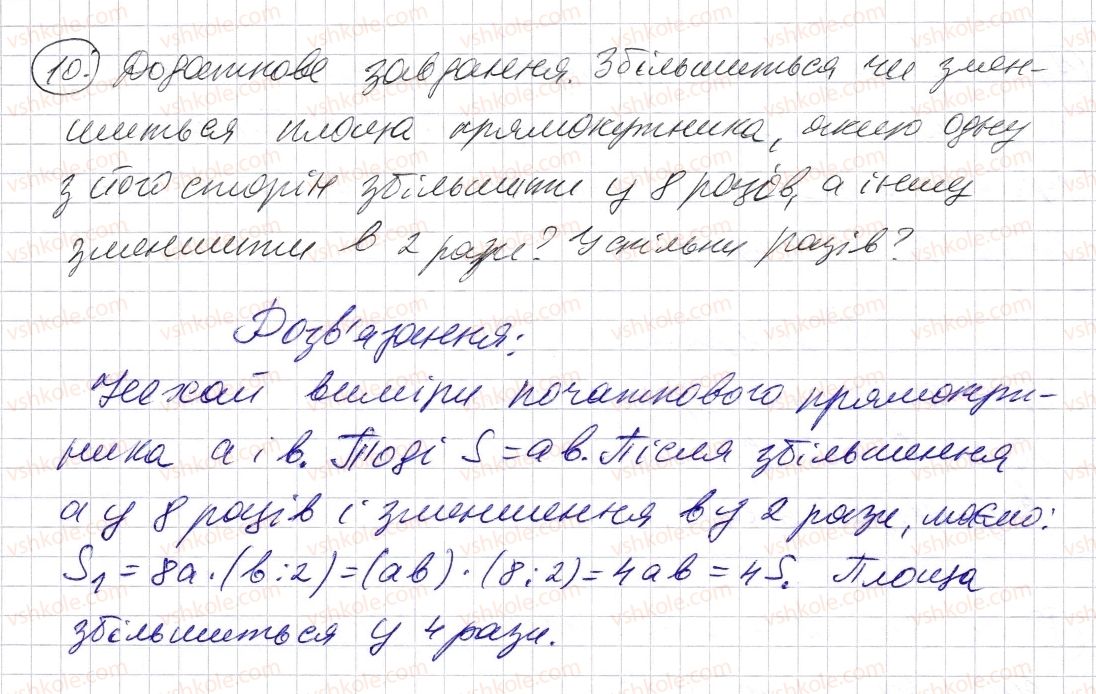 10. Додаткове завдання. Збільшиться чи змен-
шиться площа прямокутника, якщо одну
з його сторін збільшити у 8 разів, а іншу
зменшити в 2 рази? У скільки разів?
Розв'язання:
Нехай виміри початкового прямокут-
ника а і в. Тоді S = ав. Після збільшення
а у 8 разів і зменшення в у 2 рази, маємо:
S₁ = 8а · (в : 2) = (ав) · (8 : 2) = 4ав = 4S. Площа
збільшиться у 4 рази.
vshkole.com